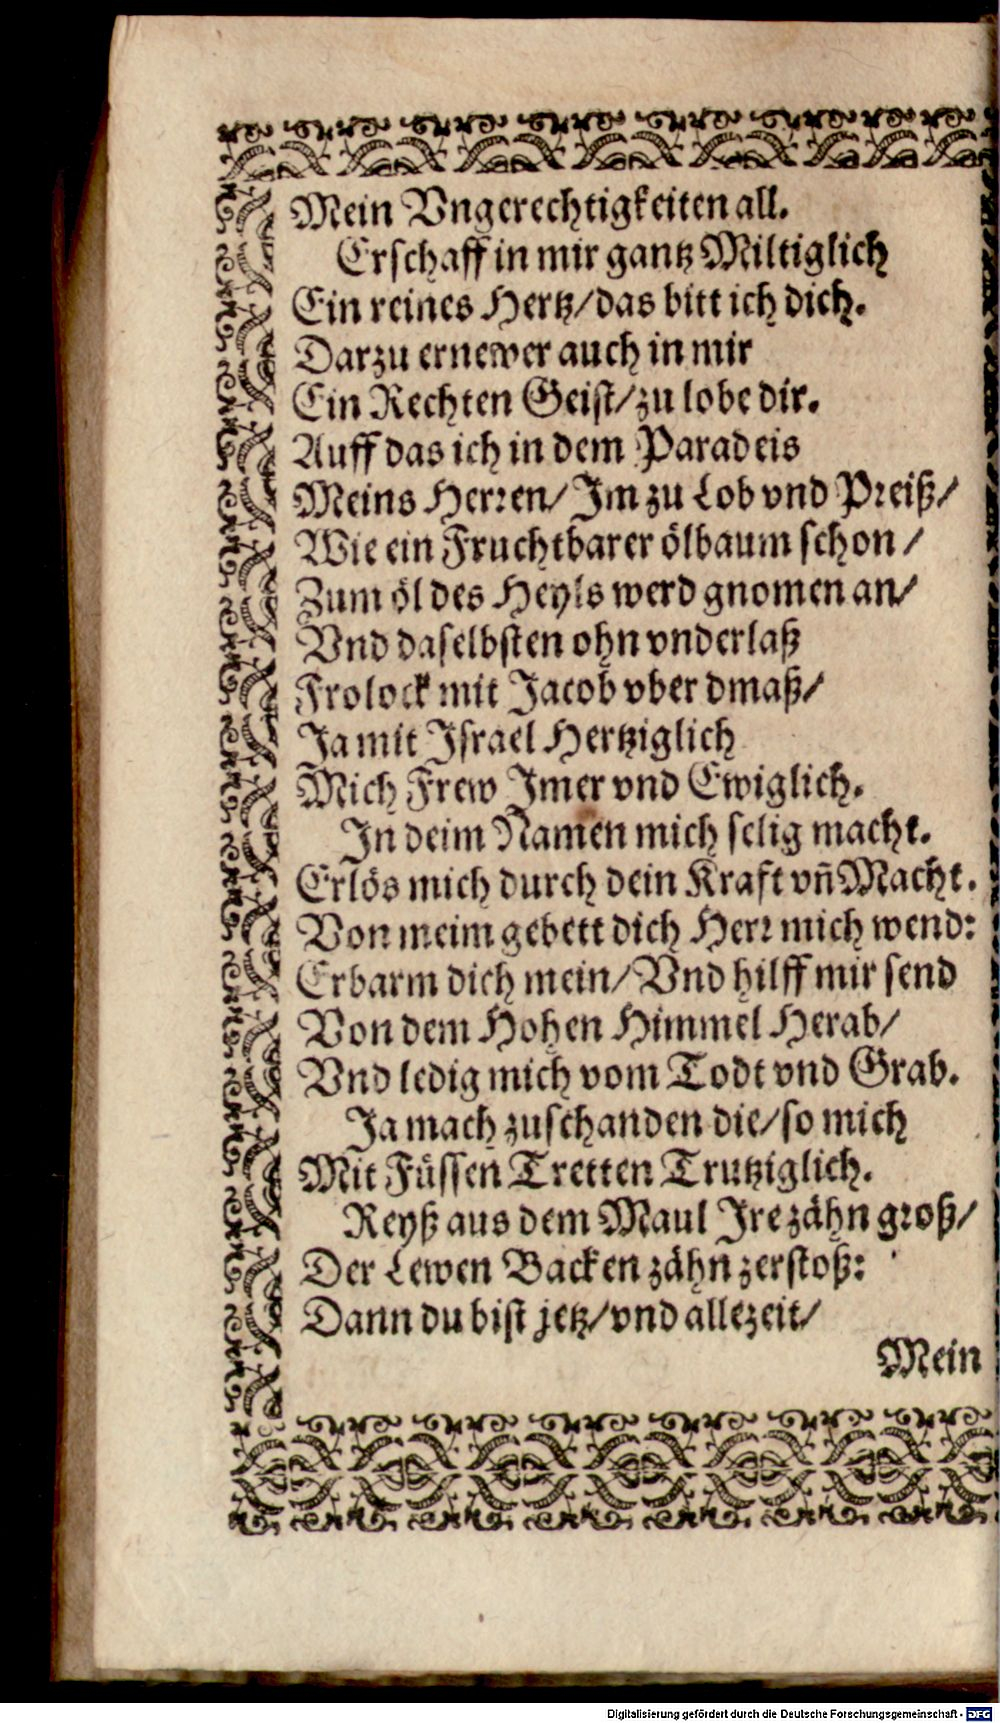 Mein Vngerechtigkeiten all.
Erschaff in mir gantz Miltiglich
Ein reines Hertz/das bitt ich dich.
Darzu ernewer auch in mir
Ein Rechten Geist/zu lobe dir.
Auff das ich in dem Paradeis
Meins Herren/Im zu Lob vnd Preiß/
Wie ein Fruchtbarer ölbaum schon/
Zum öl des Heyls werd gnomen an/
Vnd daselbsten ohn vnderlaß
Frolock mit Jacob vber dmaß/
Ja mit Israel Hertziglich
Mich Frew Imer vnd Ewiglich.
In deim Namen mich selig macht.
Erlös mich durch dein Kraft vñ Macht.
Von meim gebett dich Herr mich wend:
Erbarm dich mein/Vnd hilff mir send
Von dem Hohen Himmel Herab/
Vnd ledig mich vom Todt vnd Grab.
Ja mach zuschanden die/so mich
Mit Füssen Tretten Trutziglich.
Reyß aus dem Maul Ire zähn groß/
Der Lewen Backen zähn zerstoß:
Dann du bist jetz/vnd allezeit/
Mein
Digitalisierung gefördert durch die Deutsche Forschungsgemeinschaft - DFG